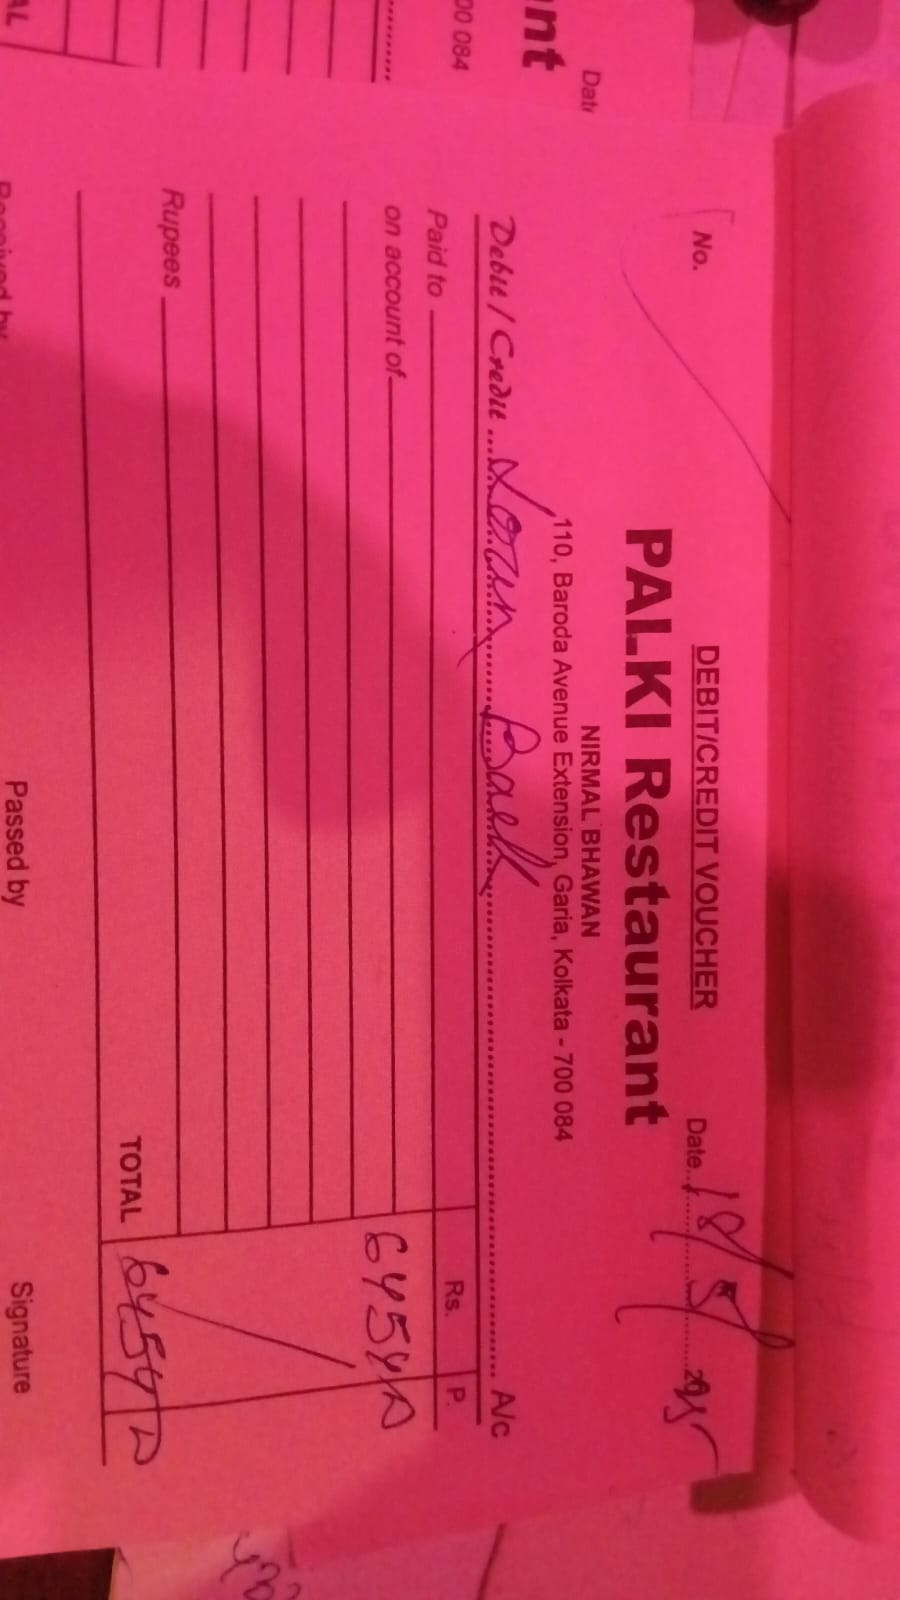 DEBIT/CREDIT VOUCHER
No.
Date 18/5/2025
PALKI Restaurant
NIRMAL BHAWAN
110, Baroda Avenue Extension, Garia, Kolkata - 700 084
Debit / Credit Loan Back A/c
Rs. P.
Paid to
on account of 6454
Rupees
TOTAL 6454
Received by Passed by Signature
nt
00 084
Date
AL